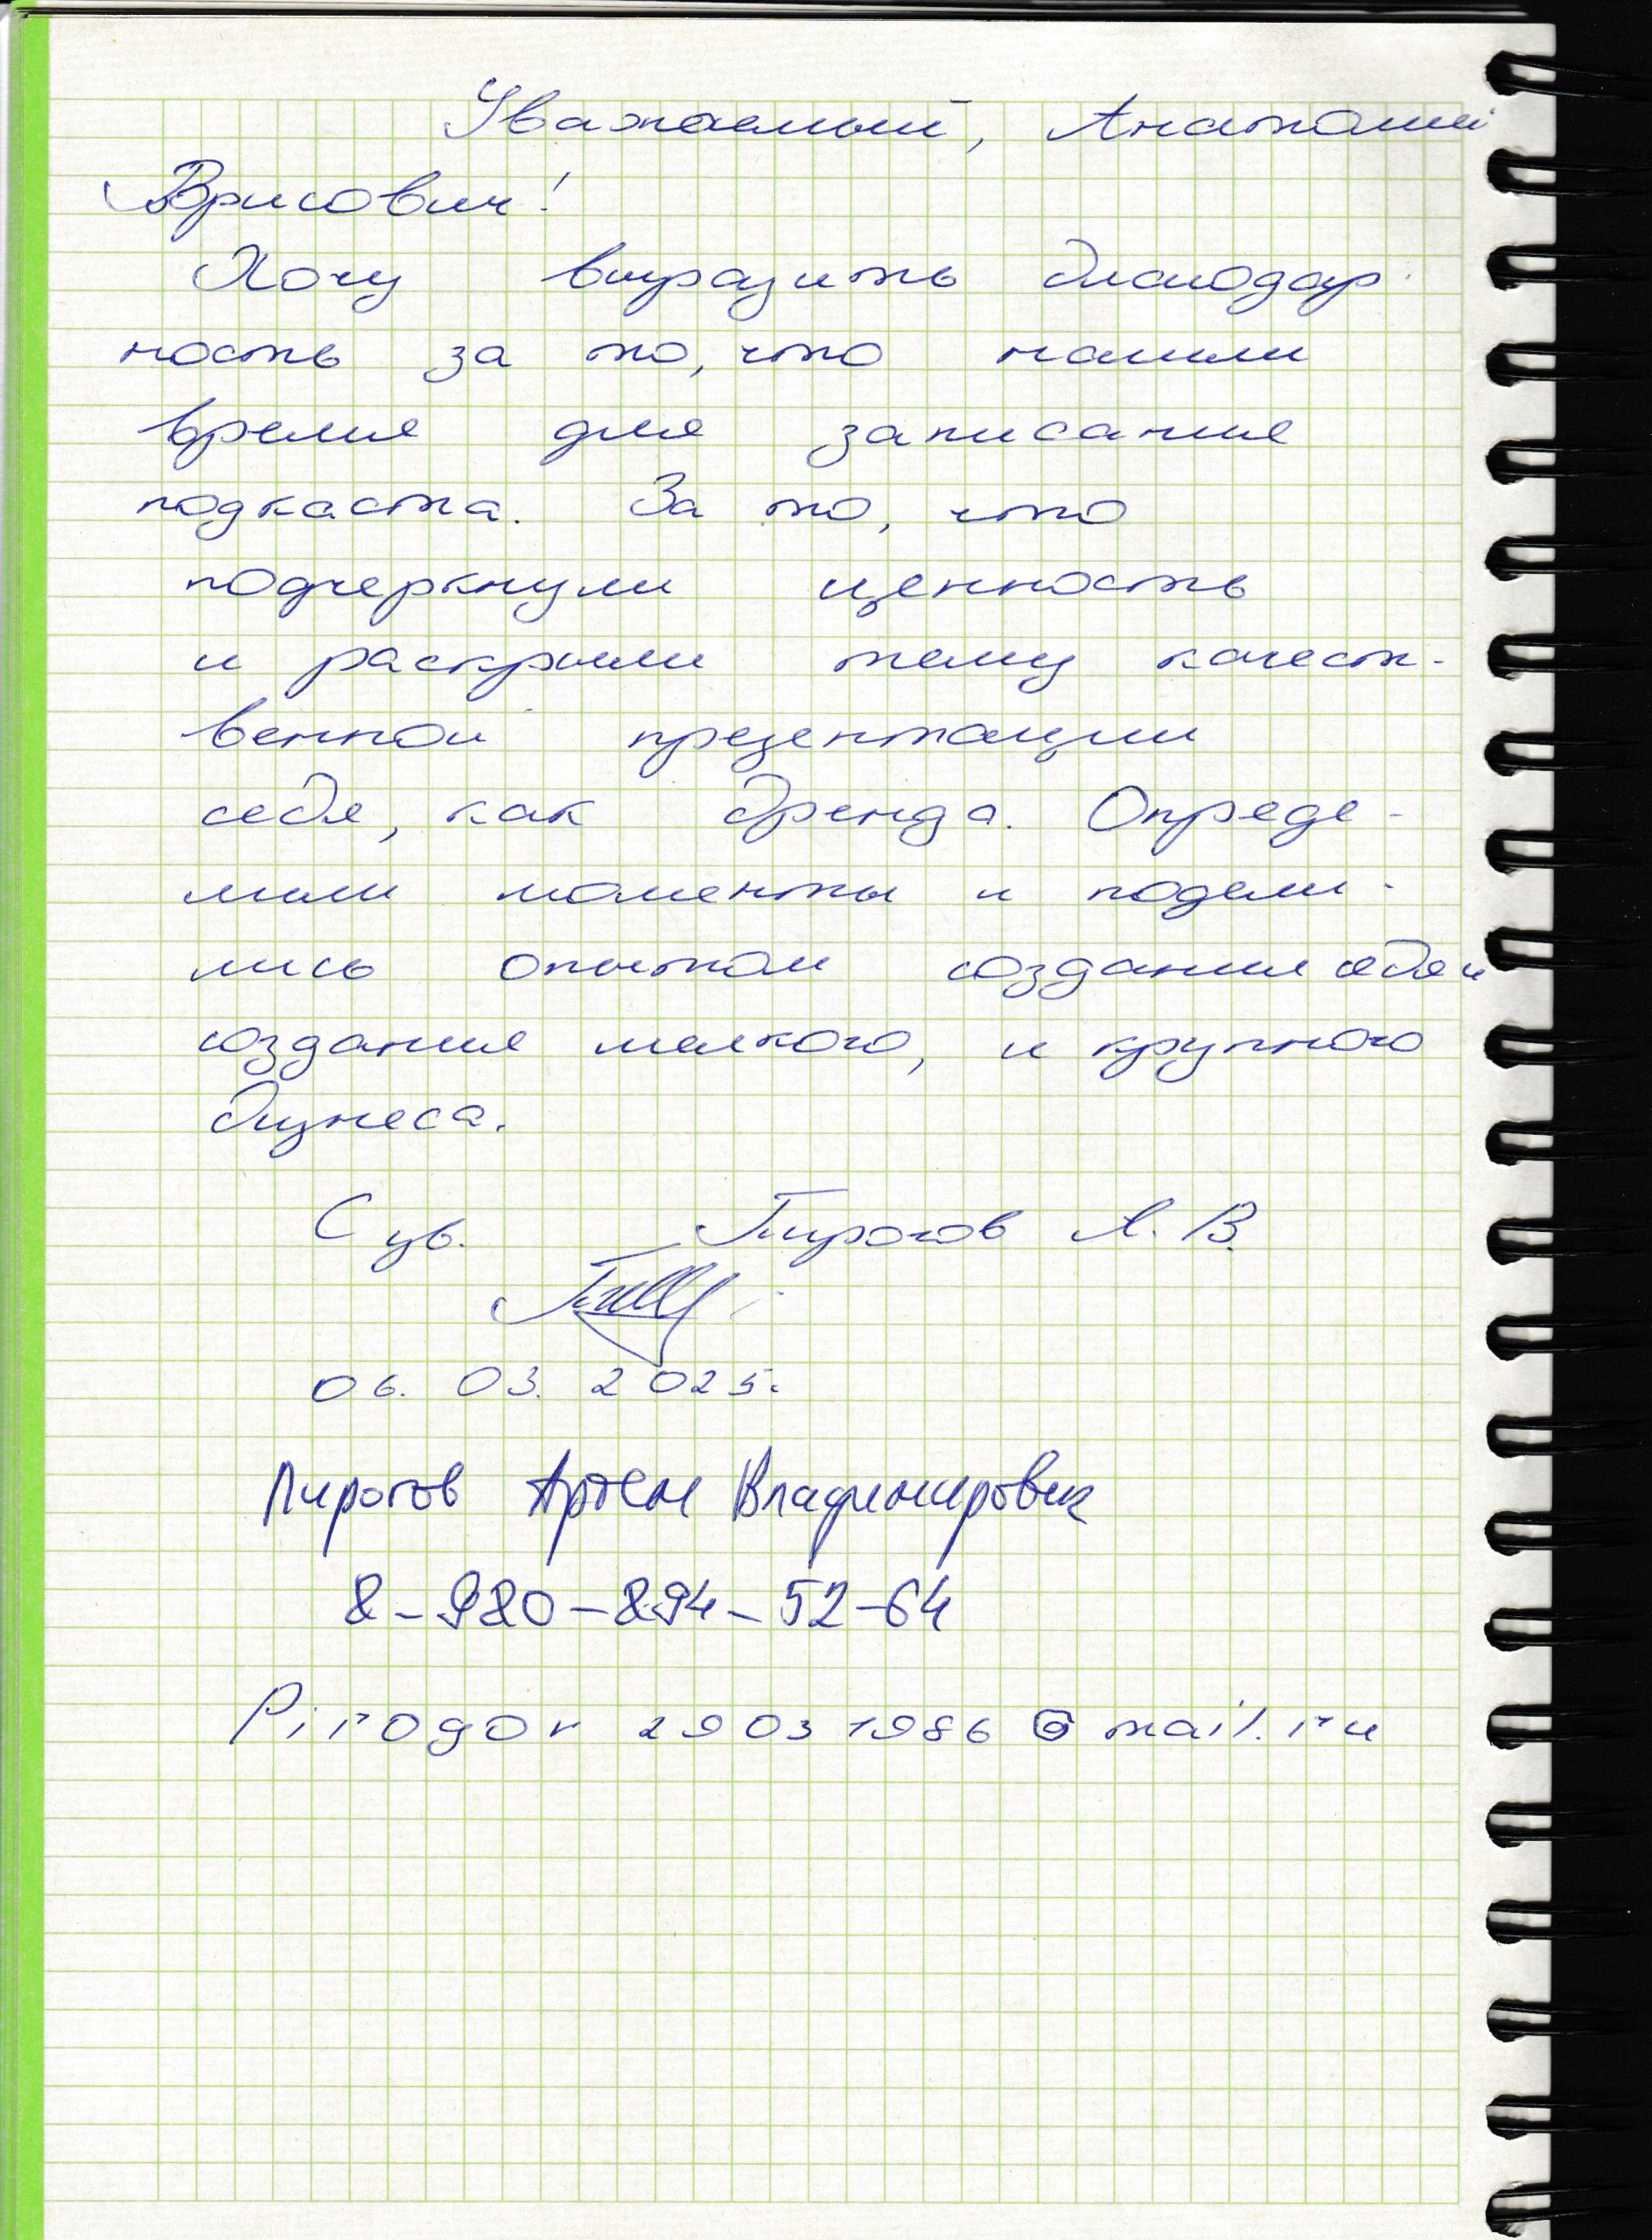 Уважаемый, Анатолий
Врисович!
Хочу выразить благодар-
ность за то, что нашли
время для записания
подкаста. За то, что
подчеркнули ценность
и раскрыли тему качест-
венной презентации
себя, как бренда. Опреде-
лили моменты и подели-
лись опытом создания себя и
создания мелкого, и крупного
бизнеса.
С ув. Пирогов А. В.
06. 03. 2025г.
Пирогов Артем Владимирович
8-980-894-52-64
Pirogov 29031986@mail.ru